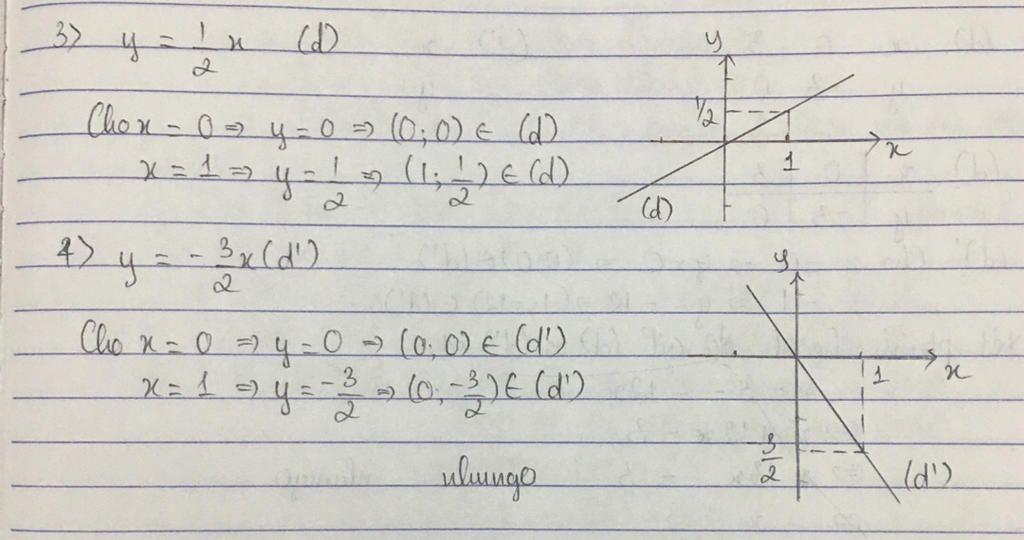 3) y = 1/2 x (d)
Cho x = 0 ⇒ y = 0 ⇒ (0; 0) ∈ (d)
x = 1 ⇒ y = 1/2 ⇒ (1; 1/2) ∈ (d)
y
1/2
1
x
(d)
4) y = - 3/2 x (d')
Cho x = 0 ⇒ y = 0 ⇒ (0; 0) ∈ (d')
x = 1 ⇒ y = -3/2 ⇒ (0; -3/2) ∈ (d')
y
1
x
-3/2
(d')
nhungo